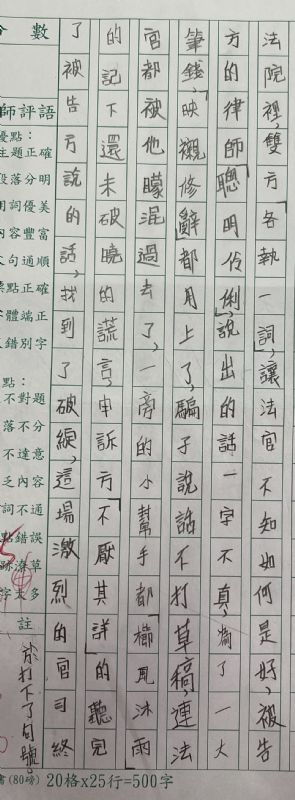 法院裡,雙方「各執一詞」,讓法官不知如何是好,被告
方的律師「聰明伶俐」,說出的話一字不真,為了一大
筆錢,「映襯修辭」都用上了,騙子說話不打草稿,連法
官都被他矇混過去了,一旁的小幫手都「櫛風沐雨」
的記下還未破曉的謊,申訴方「不厭其詳」的聽完
了被告方說的話,找到了破綻,這場激烈的官司終
於打下了句號。
分數
師評語
優點:
主題正確
段落分明
用詞優美
內容豐富
句通順
點正確
體端正
錯別字
點:
不對題
落不分
不達意
乏內容
詞不通
點錯誤
跡潦草
字太多
註
(80磅) 20格x25行=500字